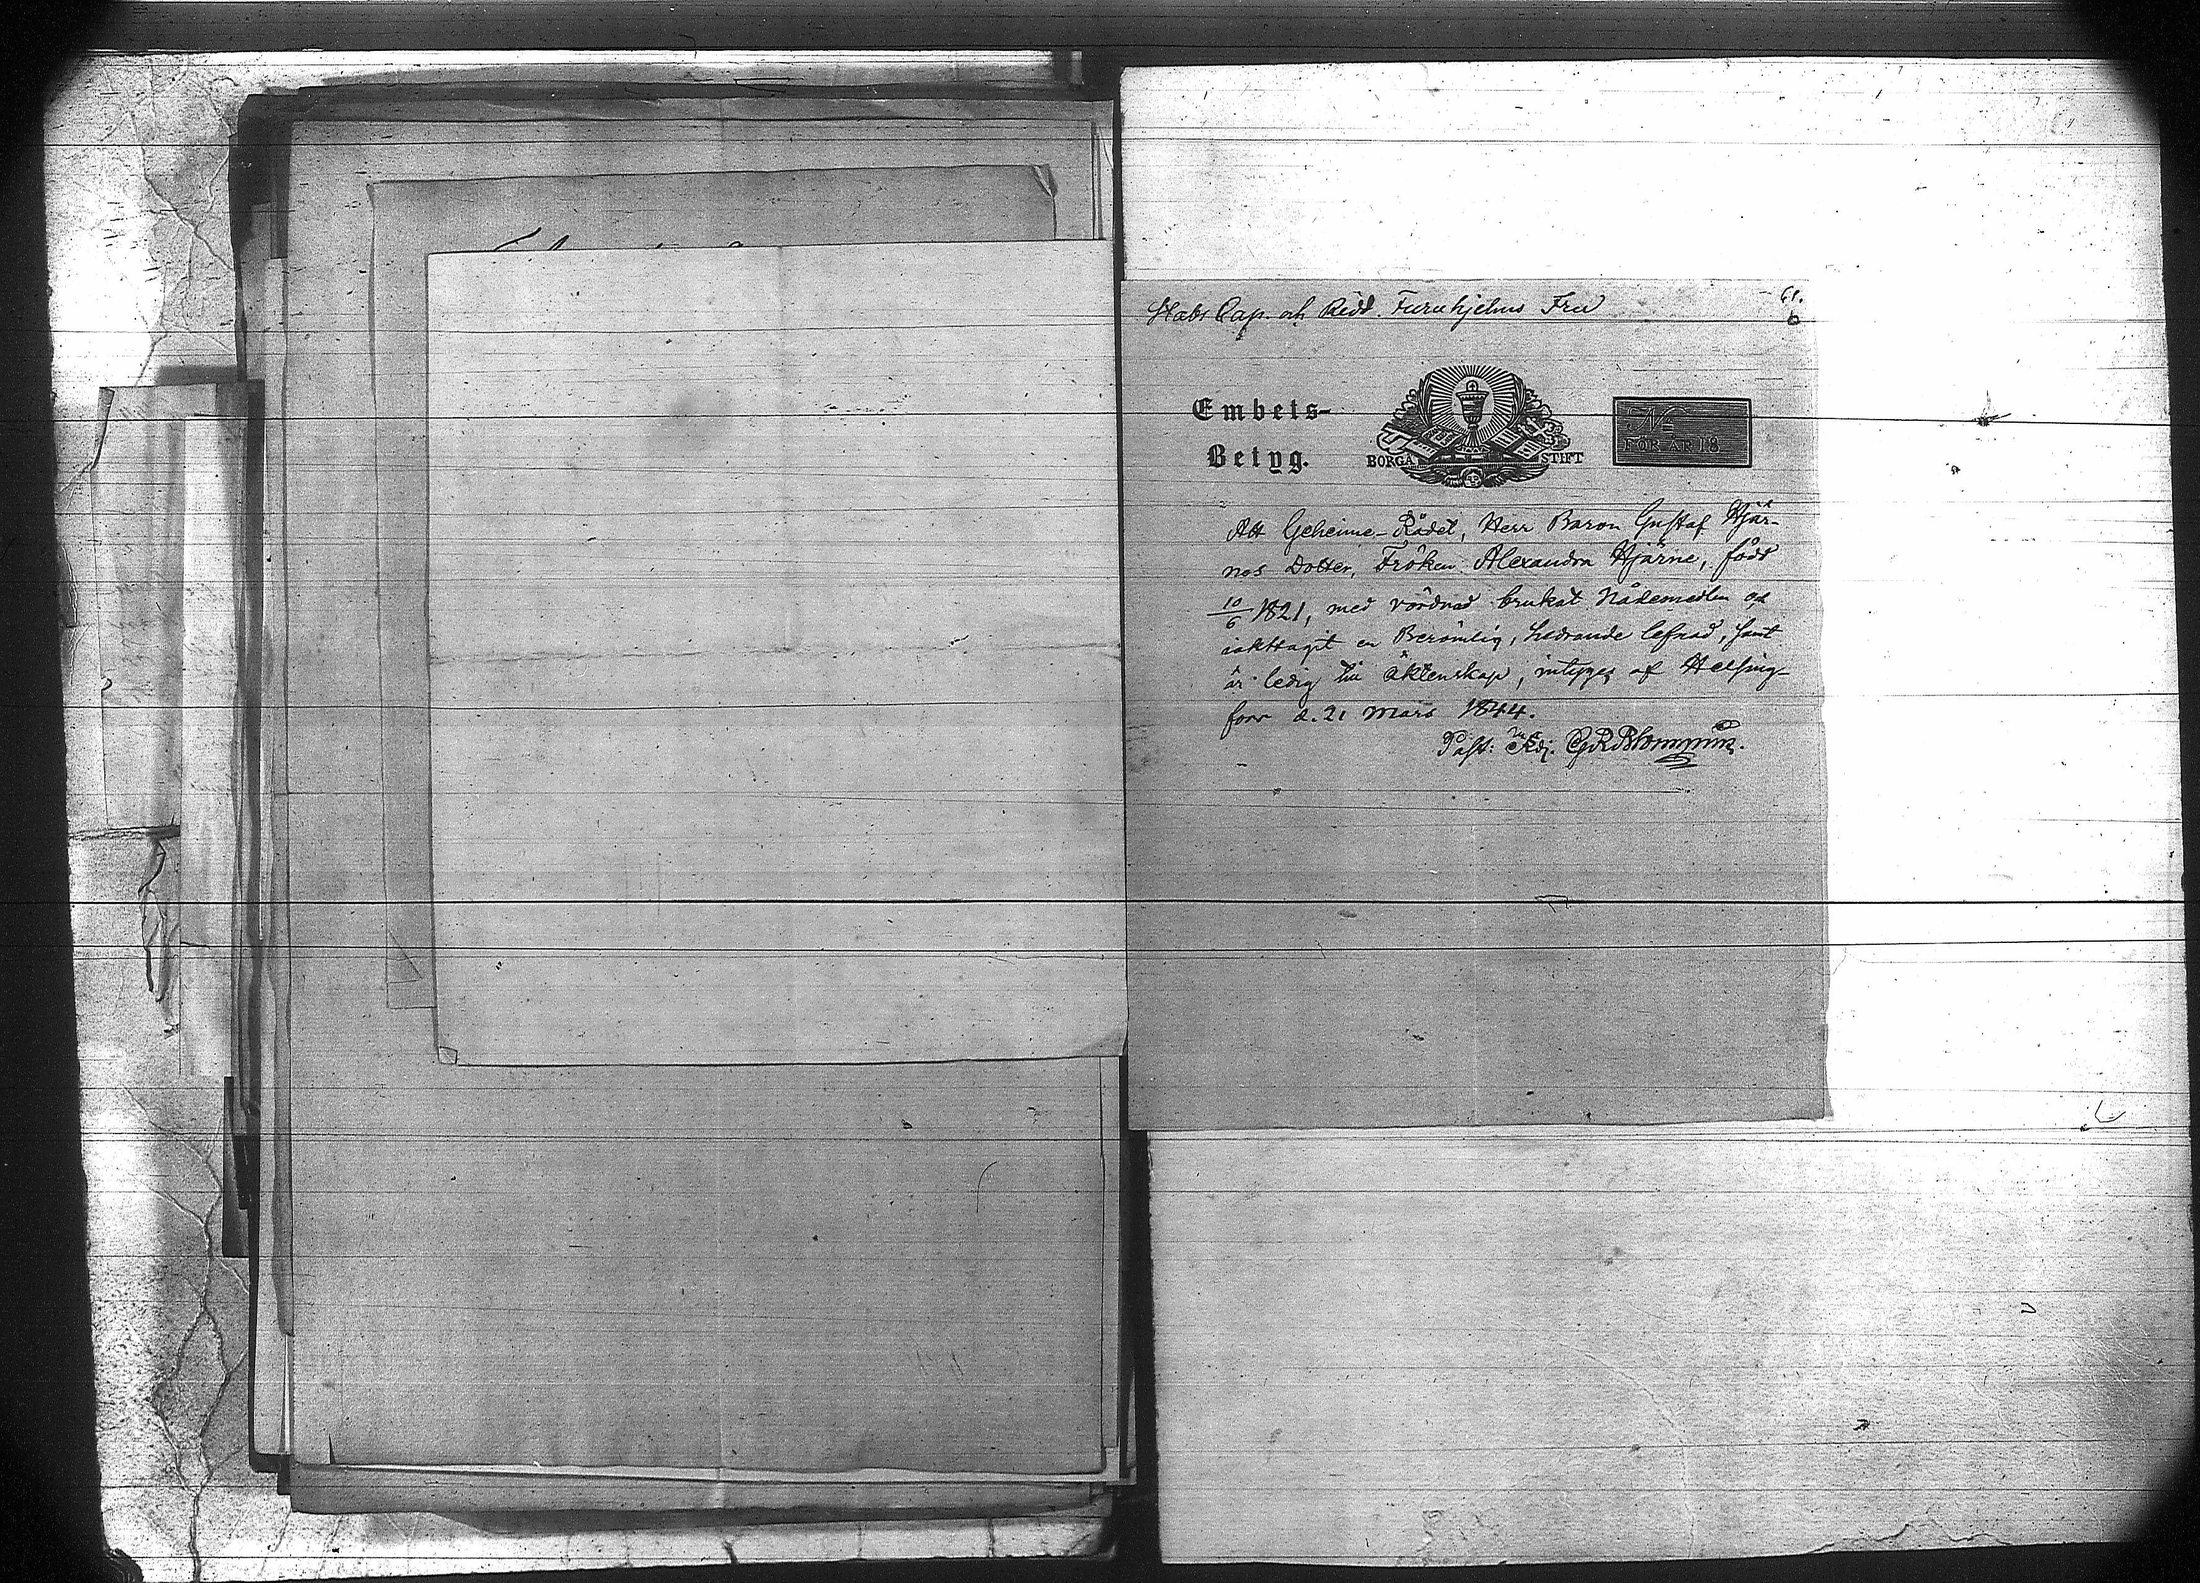 Stabs Cap. och Ridd. Furuhjelms Fru
61.
6
Embets-
Betyg.
BORGÅ STIFT
No
FÖR ÅR 18
Att Geheime-Rådet, Herr Baron Gustaf Hjär-
nes Dotter, Fröken Alexandra Hjärne, född
10/6 1821, med vördnad brukat Nådemedlen och
iakttagit en Berömlig, hedrande lefnad, samt
är ledig till äktenskap, intygas af Helsing-
fors d. 21 Mars 1844.
Past: Adj.